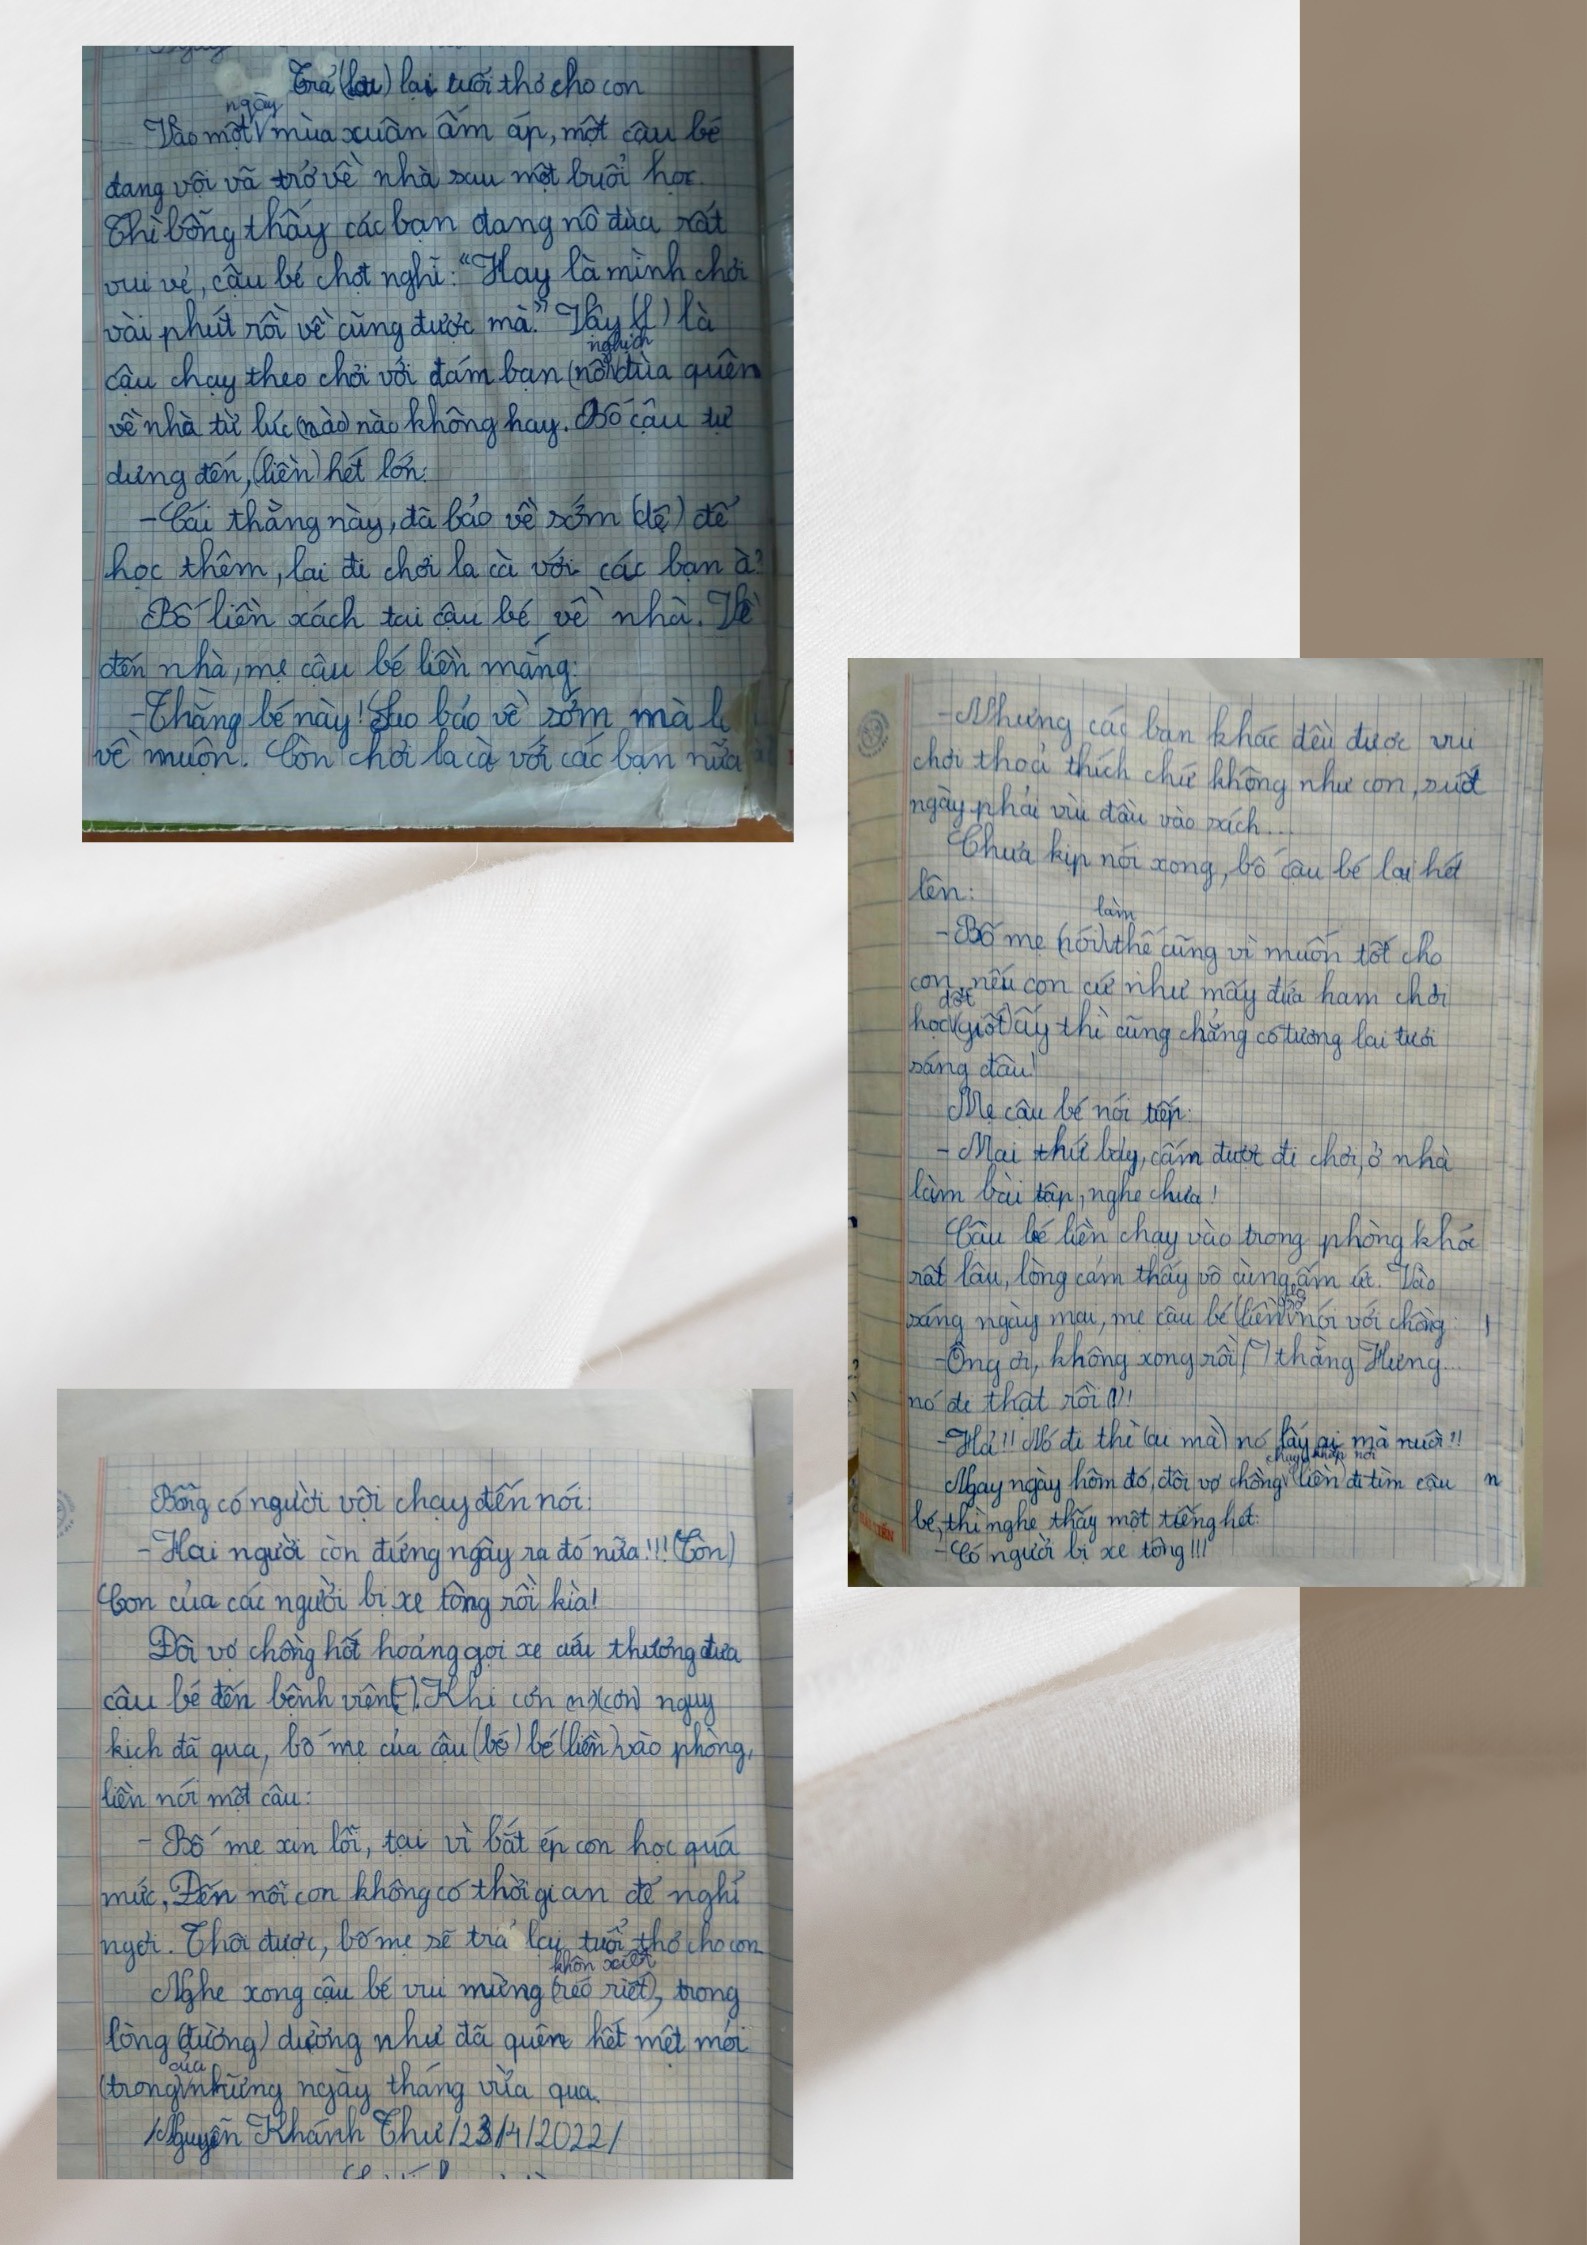 Trả (lại) lại tuổi thơ cho con
ngày
Vào một mùa xuân ấm áp, một cậu bé
đang vội vã trở về nhà sau một buổi học.
Thì bỗng thấy các bạn đang nô đùa rất
vui vẻ, cậu bé chợt nghĩ: "Hay là mình chơi
vài phút rồi về cũng được mà." Vậy (l) là
nghịch
cậu chạy theo chơi với đám bạn (nô) đùa quên
về nhà từ lúc (nào) nào không hay. Bố cậu tự
dưng đến, (liền) hét lớn:
-Cái thằng này, đã bảo về sớm (dệ) để
học thêm, lại đi chơi la cà với các bạn à?
Bố liền xách tai cậu bé về nhà. Về
đến nhà, mẹ cậu bé liền mắng:
-Thằng bé này! Sao bảo về sớm mà
về muộn. Còn chơi la cà với các bạn nữa
-Nhưng các bạn khác đều được vui
chơi thoả thích chứ không như con, suốt
ngày phải vùi đầu vào sách...
Chưa kịp nói xong, bố cậu bé lại hét
lên:
làm
-Bố mẹ (nói) thế cũng vì muốn tốt cho
con, nếu con cứ như mấy đứa ham chơi
dốt
học (giốt) ấy thì cũng chẳng có tương lai tươi
sáng đâu!
Mẹ cậu bé nói tiếp:
- Mai thứ bảy, cấm được đi chơi, ở nhà
làm bài tập, nghe chưa!
Cậu bé liền chạy vào trong phòng khóc
rất lâu, lòng cảm thấy vô cùng ấm ức. Vào
sáng ngày mai, mẹ cậu bé (liền) nói với chồng:
-Ông ơi, không xong rồi (") thằng Hưng...
nó đi thật rồi (!)!
-Hả!! Nó đi thì (ai mà) nó lấy ai mà nuôi!!
chạy khắp nơi
Ngay ngày hôm đó, đôi vợ chồng (liền) đi tìm cậu
bé, thì nghe thấy một tiếng hét:
-Có người bị xe tông!!!
Bỗng có người vội chạy đến nói:
-Hai người còn đứng ngây ra đó nữa!!! (Còn)
Con của các người bị xe tông rồi kìa!
Đôi vợ chồng hốt hoảng gọi xe cứu thương đưa
cậu bé đến bệnh viện(-). Khi cơn (n)(cơn) nguy
kịch đã qua, bố mẹ của cậu (bé) bé (liền) vào phòng,
liền nói một câu:
- Bố mẹ xin lỗi, tại vì bắt ép con học quá
mức. Đến nỗi con không có thời gian để nghỉ
ngơi. Thôi được, bố mẹ sẽ trả lại tuổi thơ cho con
khôn xiết
Nghe xong cậu bé vui mừng (réo riết), trong
lòng (đường) dường như đã quên hết mệt mỏi
của
(trong) những ngày tháng vừa qua.
/Nguyễn Khánh Thư/23/4/2022/